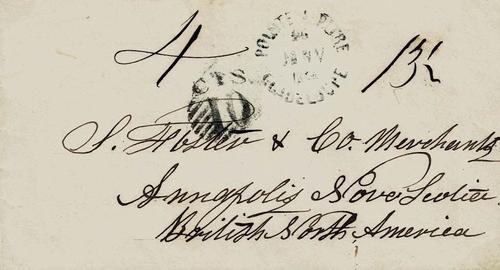 4
POINTE A PITRE
GUADELOUPE
13½
CTS.
10
S. Foster & Co. Merchants
Annapolis Nova Scotia
British North America